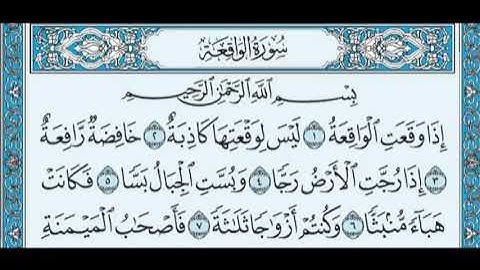 سُورَةُ الْوَاقِعَةِ
بِسْمِ اللَّهِ الرَّحْمَٰنِ الرَّحِيمِ
إِذَا وَقَعَتِ الْوَاقِعَةُ ١ لَيْسَ لِوَقْعَتِهَا كَاذِبَةٌ ٢ خَافِضَةٌ رَّافِعَةٌ
٣ إِذَا رُجَّتِ الْأَرْضُ رَجًّا ٤ وَبُسَّتِ الْجِبَالُ بَسًّا ٥ فَكَانَتْ
هَبَاءً مُّنْبَثًّا ٦ وَكُنتُمْ أَزْوَاجًا ثَلَاثَةً ٧ فَأَصْحَابُ الْمَيْمَنَةِ